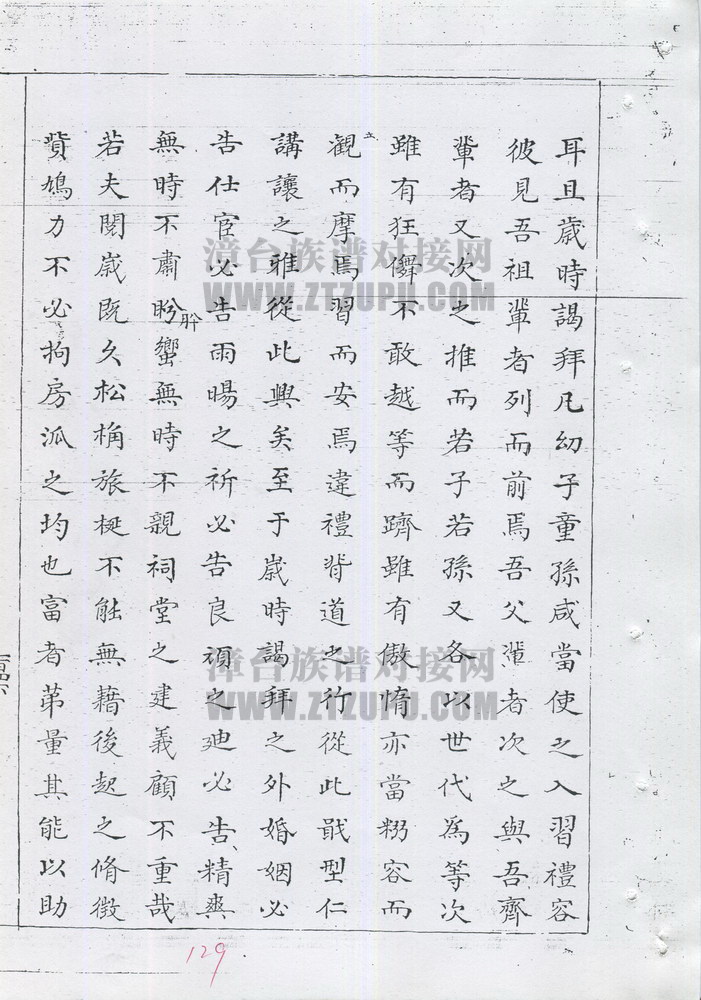 耳且歲時謁拜凡幼子童孫咸當使之入習禮容
彼見吾祖輩者列而前焉吾父輩者次之與吾齊
輩者又次之推而若子若孫又各以世代為等次
雖有狂儸不敢越等而躋雖有傲惰亦當粉容而
觀而摩焉習而安焉違禮背道之行從此戢型仁
講讓之雅從此興矣至于歲時謁拜之外婚姻必
告仕宦必告雨暘之祈必告良頑之廸必告精爽
無時不肅肹蠁無時不親祠堂之建義顧不重哉
肸
若夫閱歲既久松桷旅梴不能無藉後起之脩徵
貲鳩力不必拘房派之均也富者第量其能以助
129
漳台族谱对接网
WWW.ZTZUPU.COM
漳台族谱对接网
WWW.ZTZUPU.COM